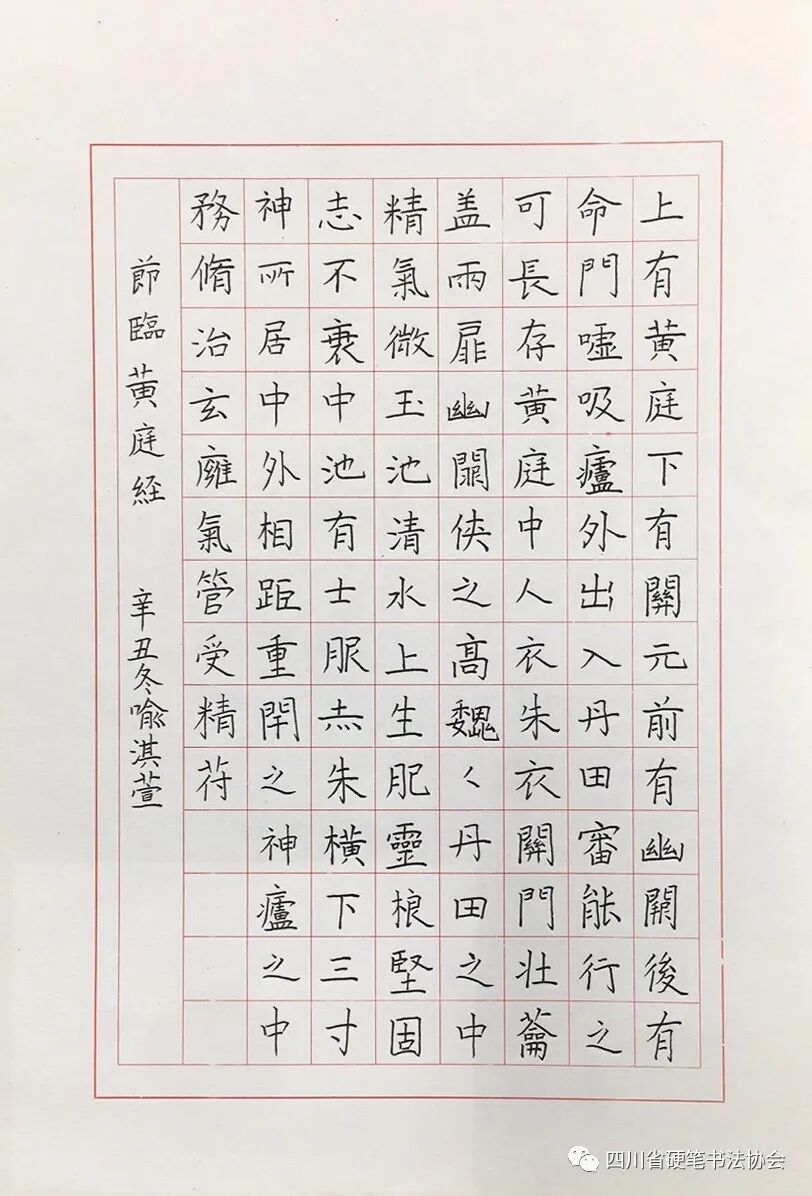 上有黃庭下有關元前有幽關後有
命門噓吸廬外出入丹田審能行之
可長存黃庭中人衣朱衣關門壯蘥
盖兩扉幽關俠之高魏〻丹田之中
精氣微玉池清水上生肥靈根堅固
志不衰中池有士服赤朱橫下三寸
神所居中外相距重閇之神廬之中
務脩治玄癰氣管受精苻
節臨黃庭経 辛丑冬喻淇萱
四川省硬笔书法协会